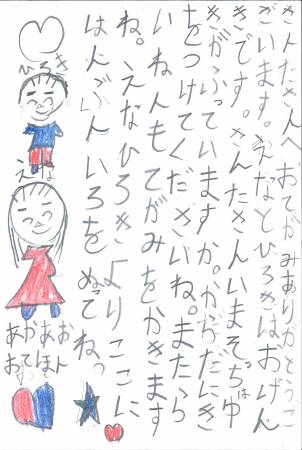 さんたさんへおてがみありがとうご
ざいます。えなとひろきはおげん
きです。さんたさんいまそっちはゆ
きがふっていますか。からだにき
をつけてくださいね。またら
いねんもてがみをかきます
ね。えなひろきよりここに
はんぶんいろをぬってねっ
ひろき
えな
あかあお
おてほん